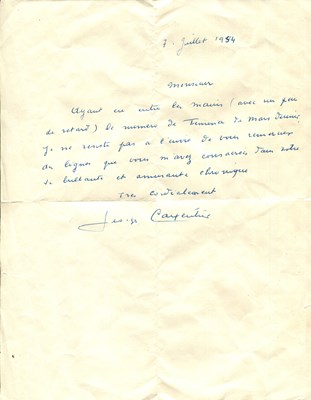 7 Juillet 1954
Monsieur
Ayant eu entre les mains (avec un peu
de retard) le numéro de de Mars dernier
Je ne resiste pas a l'envie de vous remercier
des lignes que vous m'avez consacrées dans votre
si brillante et amusante chronique
Tres Cordialement
Georges Carpentier